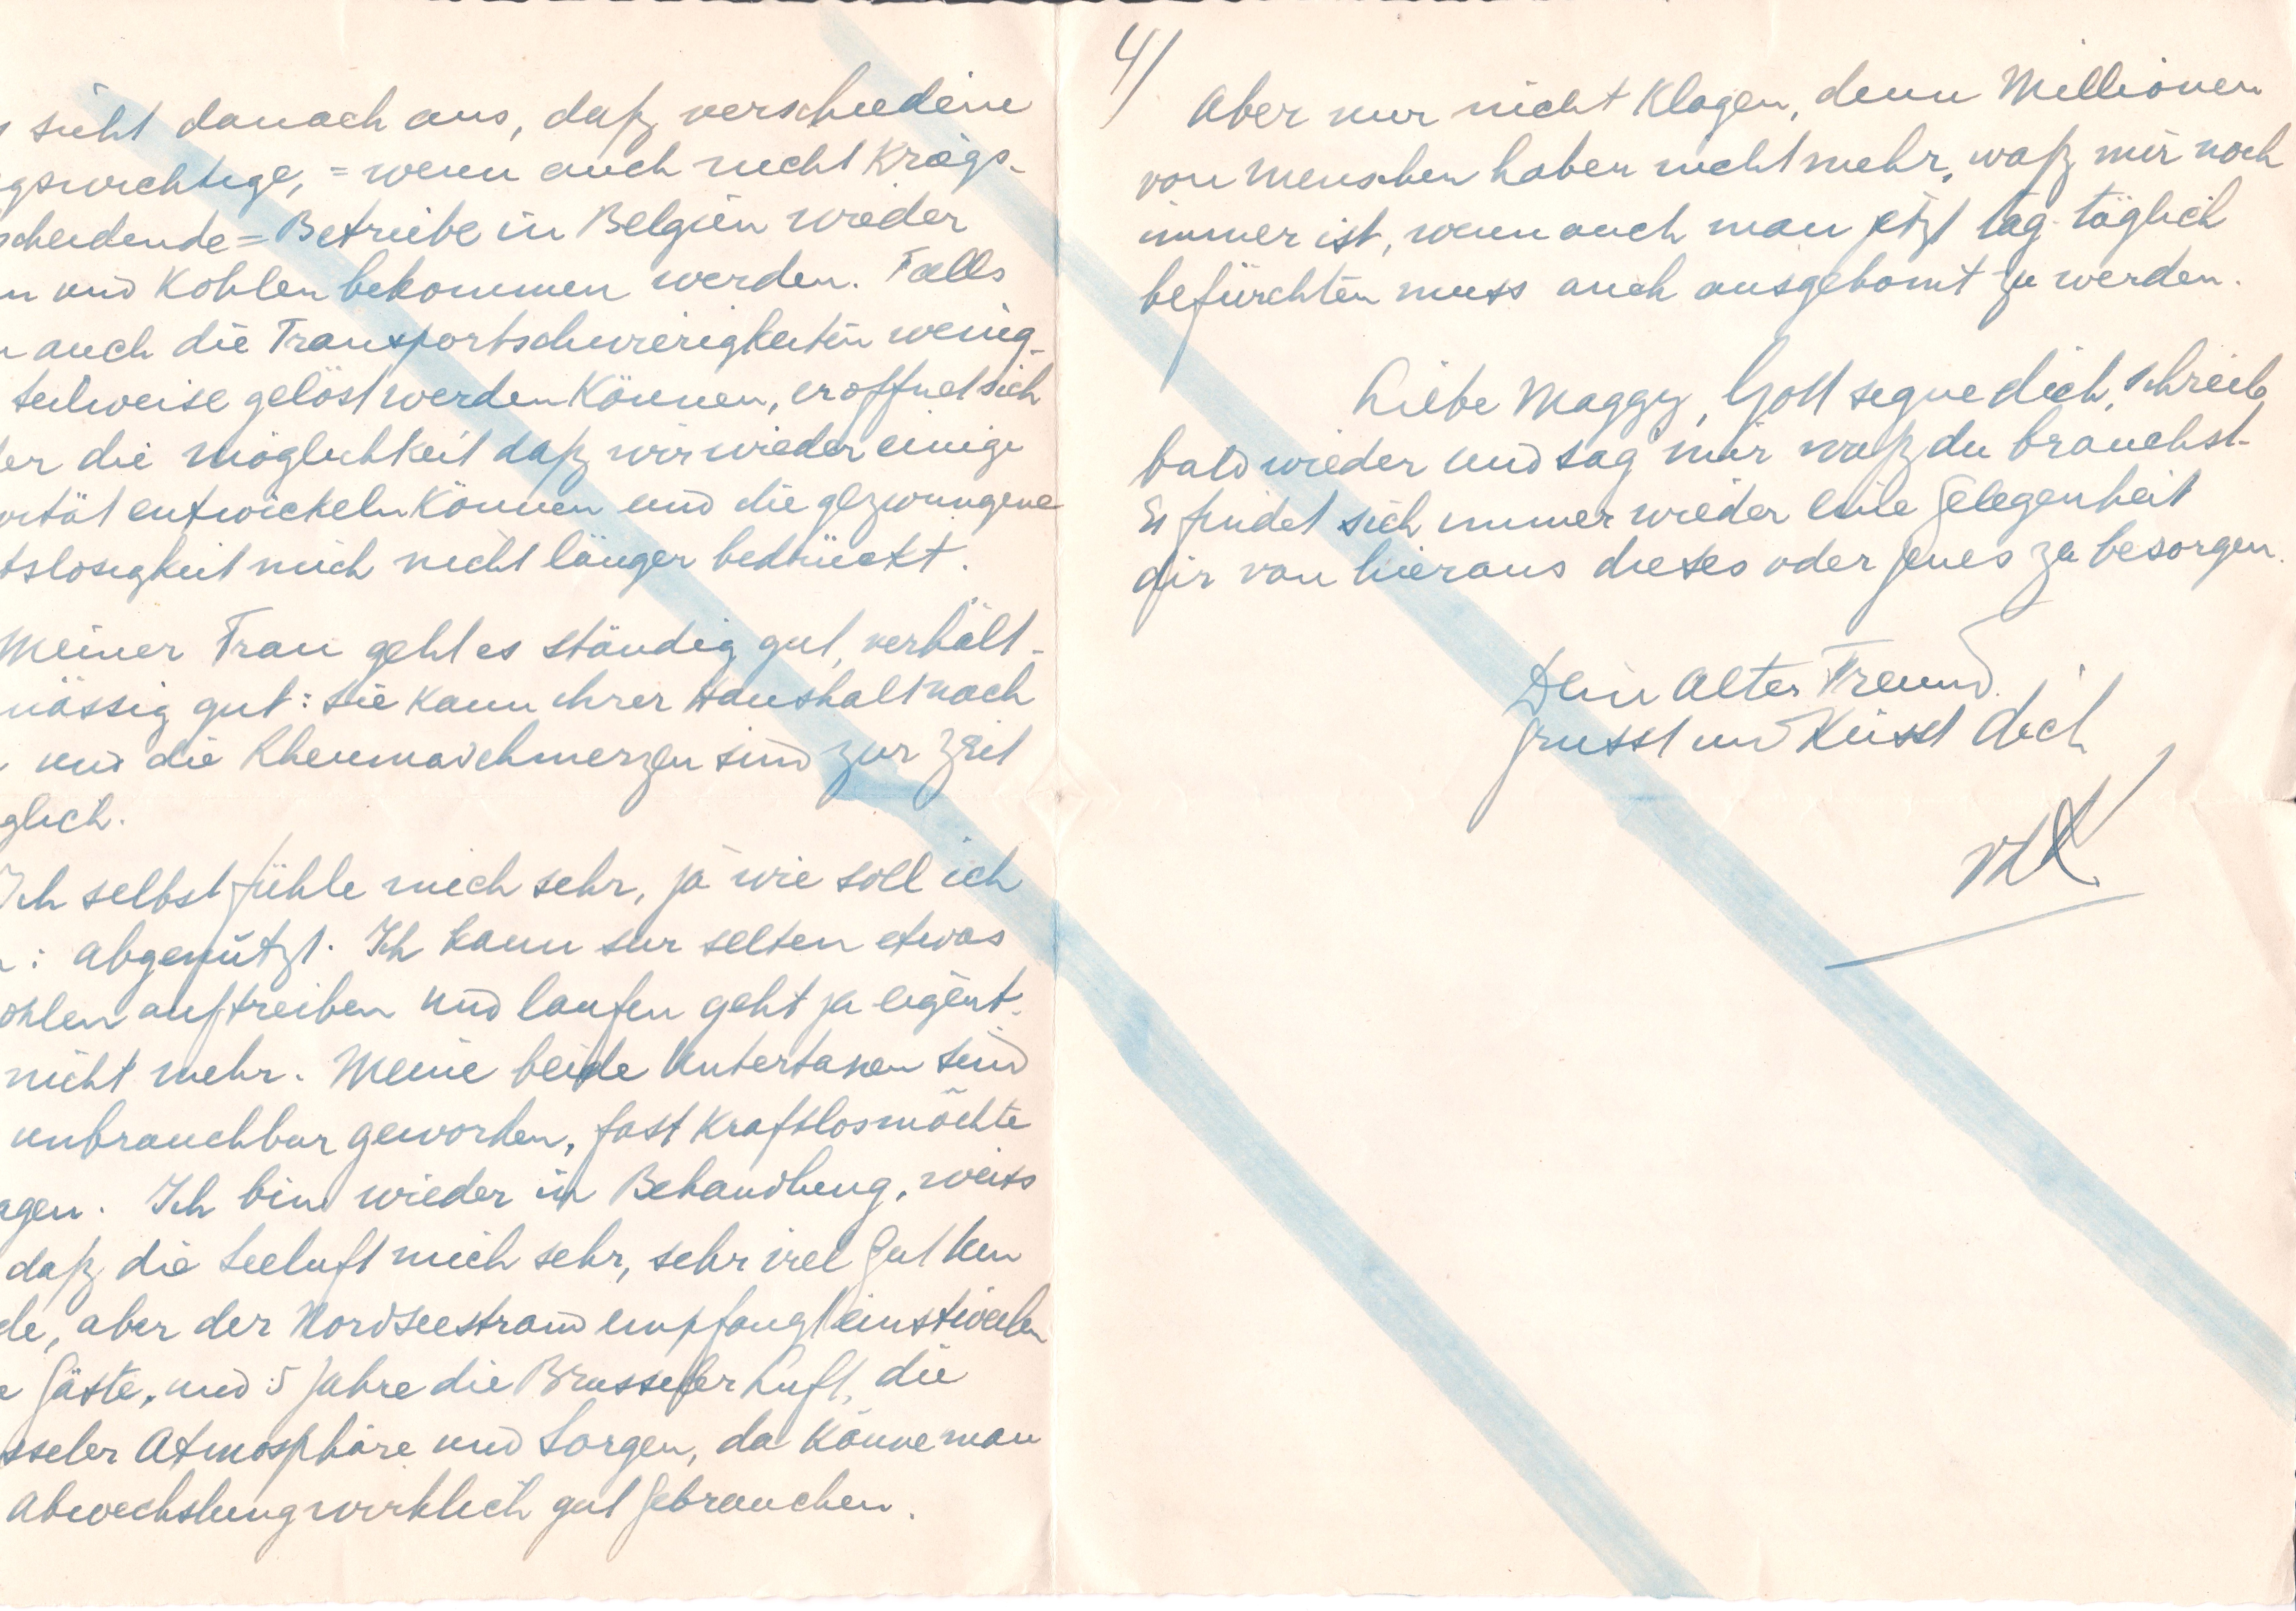 sieht danach aus, daß verschiedene
gswichtige, = wenn auch nicht Kriegs-
scheidende = Betriebe in Belgien wieder
n und Kohlen bekommen werden. Falls
auch die Transportschwierigkeiten wenig-
teilweise gelöst werden Können, eroffnet sich
er die möglichkeit daß wir wieder einige
vität entwickeln Können und die gezwungene
tslosigkeit mich nicht länger bedrückt.
Meiner Frau geht es ständig gut, verhält-
mässig gut: sie kann ihrer Haushalt noch
und die Rheumaschmerzen sind zur Zeit
glich.
Ich selbst fühle mich sehr, ja wie soll ich
: abgenützt. Ich kann sur selten etwas
ohlen auftreiben und laufen geht ja eigent-
nicht mehr. Meine beide Untertanen sind
unbrauchbar geworden, fast Kraftlos möchte
agen. Ich bin wieder in Behandlung, weiss
daß die Seeluft mich sehr, sehr viel Gut tun
de, aber der Nordseestrand empfangt einstweilen
e Gäste, und 5 Jahre die Brusseler Luft, die
sseler Atmosphäre und Sorgen, da Könne man
Abwechslung wirklich gut Gebrauchen.
4/
Aber nur nicht Klagen, denn Millionen
von Menschen haben nicht mehr, waß mir noch
immer ist, wenn auch man jetzt tag-täglich
befürchten muss auch ausgebomt zu werden.
Liebe Maggy, Gott segne dich, schreib
bald wieder und sag mir waß du brauchst.
Es findet sich immer wieder eine Gelegenheit
dir von hieraus dieses oder jenes zu besorgen.
Dein Alter Freund
Grusst und Küsst dich